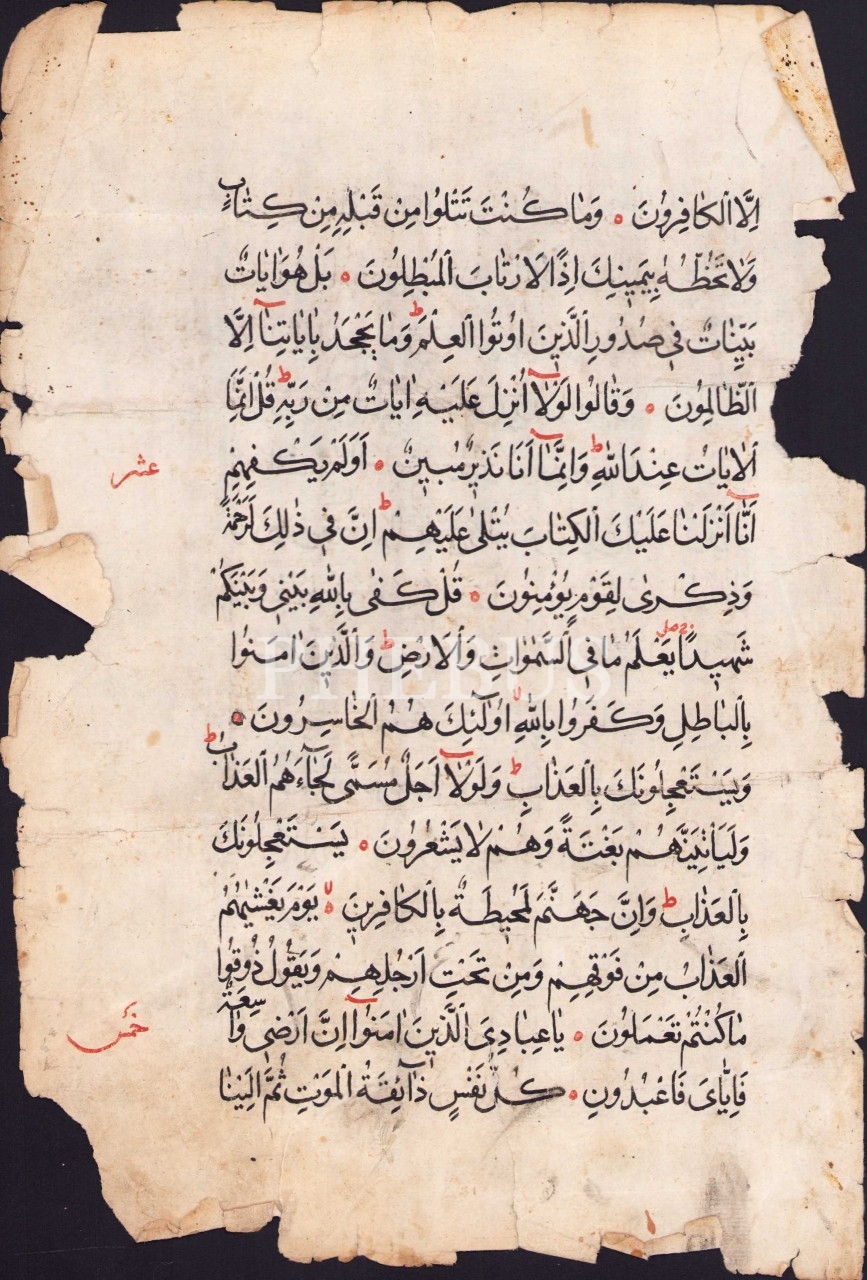 اِلَّا الْكَافِرُونَ ۰ وَمَا كُنْتَ تَتْلُوا مِنْ قَبْلِهِ مِنْ كِتَابٍ
وَلَا تَخُطُّهُ بِيَمِينِكَ اِذًا لَارْتَابَ الْمُبْطِلُونَ ۰ بَلْ هُوَ اٰيَاتٌ
بَيِّنَاتٌ فِي صُدُورِ الَّذِينَ اُوتُوا الْعِلْمَ ط وَمَا يَجْحَدُ بِاٰيَاتِنَا اِلَّا
الظَّالِمُونَ ۰ وَقَالُوا لَوْلَا اُنْزِلَ عَلَيْهِ اٰيَاتٌ مِنْ رَبِّهِ ط قُلْ اِنَّمَا
الْاٰيَاتُ عِنْدَ اللّٰهِ ط وَاِنَّمَا اَنَا نَذِيرٌ مُبِينٌ ۰ اَوَلَمْ يَكْفِهِمْ
عشر
اَنَّا اَنْزَلْنَا عَلَيْكَ الْكِتَابَ يُتْلٰى عَلَيْهِمْ ط اِنَّ فِي ذٰلِكَ لَرَحْمَةً
وَذِكْرٰى لِقَوْمٍ يُؤْمِنُونَ ۰ قُلْ كَفٰى بِاللّٰهِ بَيْنِي وَبَيْنَكُمْ
شَهِيدًا يَعْلَمُ مَا فِي السَّمٰوَاتِ وَالْاَرْضِ ط وَالَّذِينَ اٰمَنُوا
PHEBUS
بِالْبَاطِلِ وَكَفَرُوا بِاللّٰهِ لا اُولٰٓئِكَ هُمُ الْخَاسِرُونَ ۰
وَيَسْتَعْجِلُونَكَ بِالْعَذَابِ ط وَلَوْلَا اَجَلٌ مُسَمًّى لَجَاءَهُمُ الْعَذَابُ ط
وَلَيَأْتِيَنَّهُمْ بَغْتَةً وَهُمْ لَا يَشْعُرُونَ ۰ يَسْتَعْجِلُونَكَ
بِالْعَذَابِ ط وَاِنَّ جَهَنَّمَ لَمُحِيطَةٌ بِالْكَافِرِينَ ۰ لا يَوْمَ يَغْشٰيهُمُ
الْعَذَابُ مِنْ فَوْقِهِمْ وَمِنْ تَحْتِ اَرْجُلِهِمْ وَيَقُولُ ذُوقُوا
مَا كُنْتُمْ تَعْمَلُونَ ۰ يَا عِبَادِيَ الَّذِينَ اٰمَنُوا اِنَّ اَرْضِي وَاسِعَةٌ
خمس
فَاِيَّايَ فَاعْبُدُونِ ۰ كُلُّ نَفْسٍ ذَائِقَةُ الْمَوْتِ ثُمَّ اِلَيْنَا